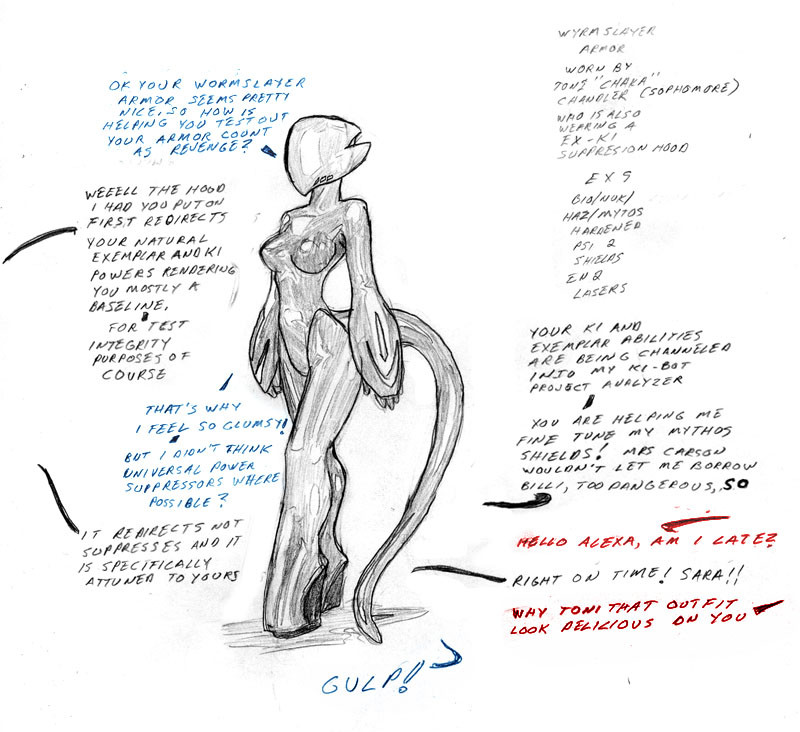 OK YOUR WORMSLAYER
ARMOR SEEMS PRETTY
NICE, SO HOW IS
HELPING YOU TEST OUT
YOUR ARMOR COUNT
AS REVENGE?
WEEELL THE HOOD
I HAD YOU PUT ON
FIRST REDIRECTS
YOUR NATURAL
EXEMPLAR AND KI
POWERS RENDERING
YOU MOSTLY A
BASELINE.
FOR TEST
INTEGRITY
PURPOSES OF
COURSE
THAT'S WHY
I FEEL SO GLUMSY!
BUT I DIDN'T THINK
UNIVERSAL POWER
SUPPRESSORS WHERE
POSSIBLE?
IT REDIRECTS NOT
SUPPRESSES AND IT
IS SPECIFICALLY
ATTUNED TO YOURS
WYRMSLAYER
ARMOR
WORN BY
TONI "CHAKA"
CHANDLER (SOPHOMORE)
WHO IS ALSO
WEARING A
EX-KI
SUPPRESION HOOD
EX 5
BIO/NUK/
HAZ/MYTOS
HARDENED
PSI 2
SHIELDS
EN 2
LASERS
YOUR KI AND
EXEMPLAR ABILITIES
ARE BEING CHANNELED
INTO MY KI-BOT
PROJECT ANALYZER
YOU ARE HELPING ME
FINE TUNE MY MYTHOS
SHIELDS! MRS CARSON
WOULDN'T LET ME BORROW
BILLI, TOO DANGEROUS, SO
HELLO ALEXA, AM I LATE?
RIGHT ON TIME! SARA!!
WHY TONI THAT OUTFIT
LOOK DELICIOUS ON YOU
GULP!